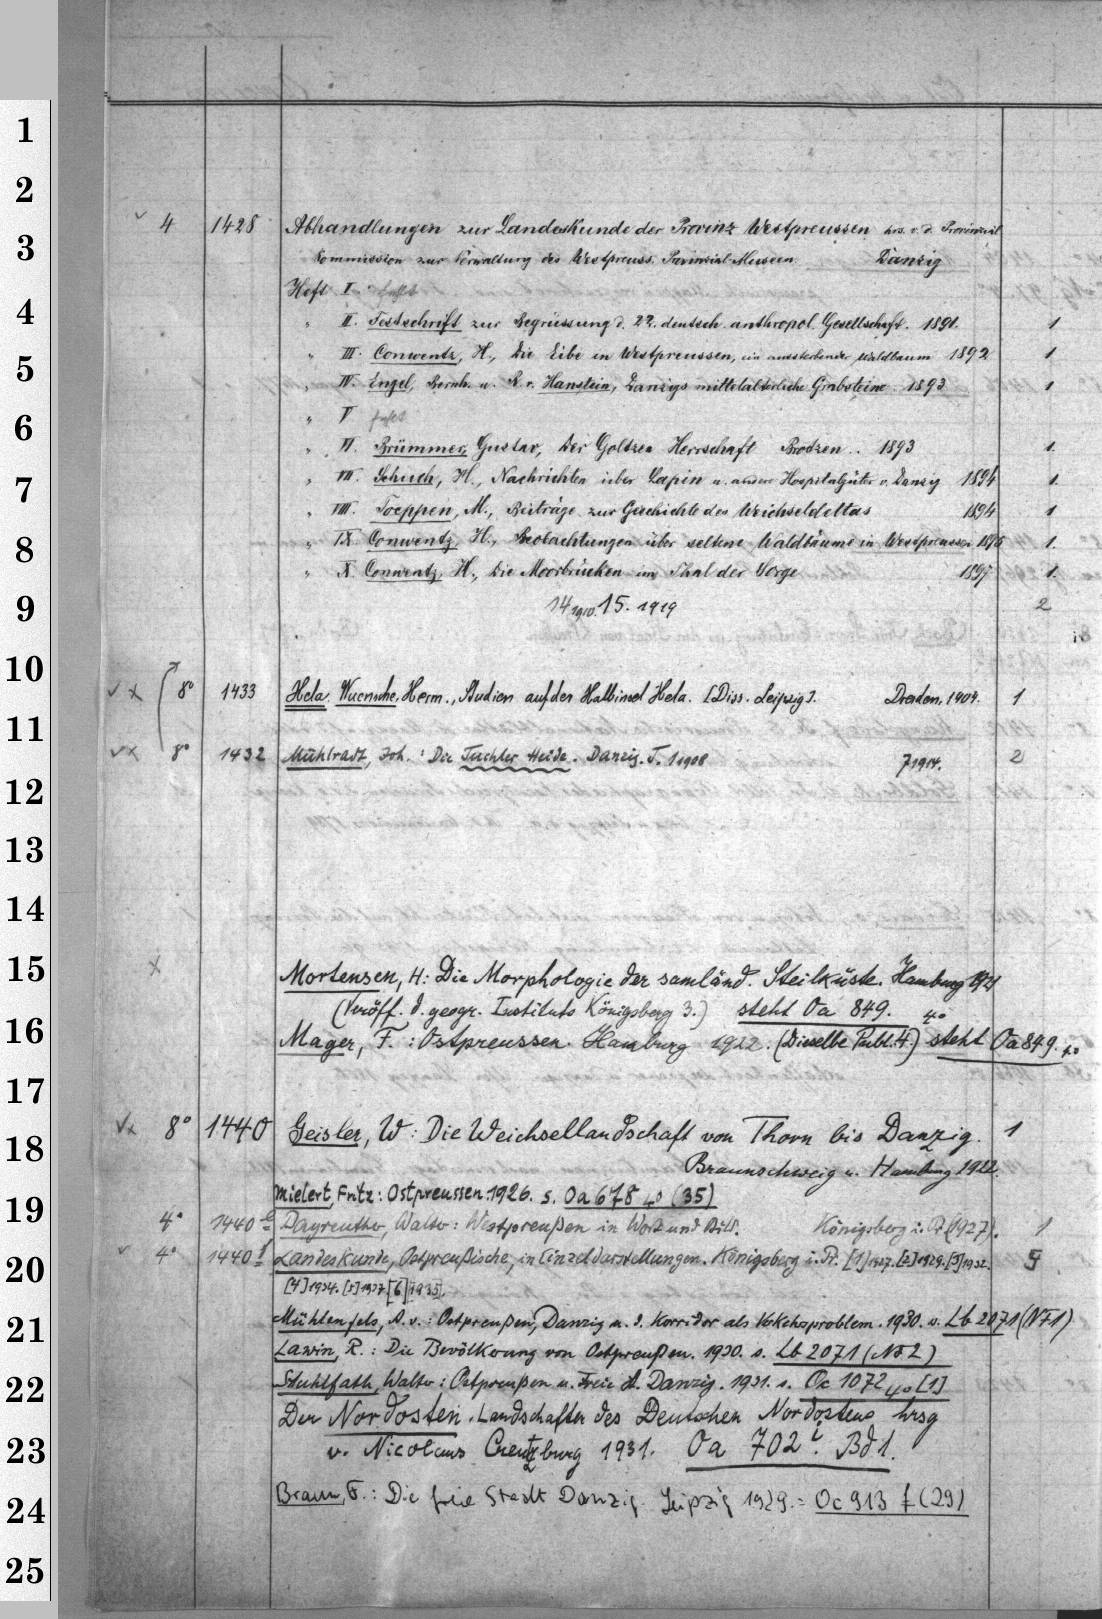 4 1428 Abhandlungen zur Landeskunde der Provinz Westpreussen hrs. v. d. Provinzial
Kommission zur Verwaltung des Westpreuss. Provinzial-Museen Danzig
Heft I. fehlt
" II. Festschrift zur Begrüssung d. 22. deutsch. anthropol. Gesellschaft. 1891. 1
" III. Conwentz, H., Die Eibe in Westpreussen, ein aussterbender Waldbaum 1892 1
" IV. Engel, Bernh. u. R. v. Hanstein, Danzigs mittelalterliche Grabsteine. 1893 1
" V fehlt
" VI. Brümmer, Gustav, Der Goltzen Herrschaft Brotzen.. 1893 1.
" VII. Schuch, H., Nachrichten über Lapin u. andere Hospitalgüter v. Danzig 1894 1
" VIII. Toeppen, M., Beiträge zur Geschichte des Weichseldeltas 1894 1
" IX. Conwentz, H., Beobachtungen über seltene Waldbäume in Westpreussen 1895 1.
" X. Conwentz, H., Die Moorbrücken im Thal der Sorge 1897 1.
14 1910. 15. 1919 2
8° 1433 Hela. Wuensche, Herm., Studien auf der Halbinsel Hela. [Diss. Leipzig]. Dresden, 1904. 1
8° 1432 Mühlradt, Joh.: Die Tuchler Heide. Danzig. T. 1 1908 1914. 2
Mortensen, H: Die Morphologie der samländ. Steilküste. Hamburg 1921
(Veröff. d. geogr. Instituts Königsberg 3.) steht Oa 849. 4°
Mager, F.: Ostpreussen. Hamburg 1922. (Dieselbe Publ. 4.) steht Oa 849. 4°
8° 1440 Geisler, W: Die Weichsellandschaft von Thorn bis Danzig. 1
Braunschweig u. Hamburg 1922.
Mielert, Fritz: Ostpreussen. 1926. s. Oa 678 4° (35)
4° 1440 e Dayreuther, Walter: Westpreußen in Wort und Bild. Königsberg i. Pr. (1927). 1
4° 1440 f Landeskunde, Ostpreußische, in Einzeldarstellungen. Königsberg i. Pr. [1] 1927. [2] 1929. [3] 1932. 5
[4] 1934. [5] 1937. [6] 1935.
Mühlenfels, A. v.: Ostpreußen, Danzig u. d. Korridor als Verkehrsproblem. 1930. s. Lb 2071 (NF1)
Lawin, R.: Die Bevölkerung von Ostpreußen. 1930. s. Lb 2071 (NF 2)
Stuhlfath, Walter: Ostpreußen u. Freie St. Danzig. 1931. s. Oc 1072 4° [1]
Der Nordosten. Landschaften des Deutschen Nordostens hrsg
v. Nicolaus Creutzburg 1931. Oa 702 i. Bd 1.
Braun, F.: Die freie Stadt Danzig. Leipzig 1929. = Oc 913 f (29)
1
2
3
4
5
6
7
8
9
10
11
12
13
14
15
16
17
18
19
20
21
22
23
24
25